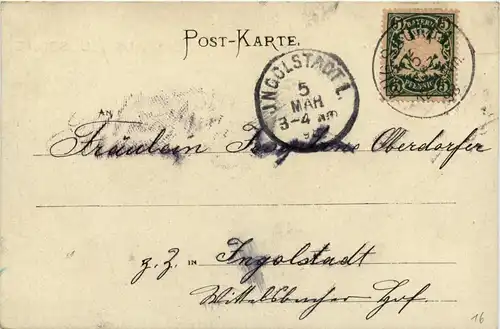 POST-KARTE.
BAYERN
5 5
PFENNIG
INGOLSTADT I.
5
MAR
3-4 Nm
AN
Fräulein Oberdorfer
z. Z. IN Ingolstadt
Wittelsbacher Hof.
16